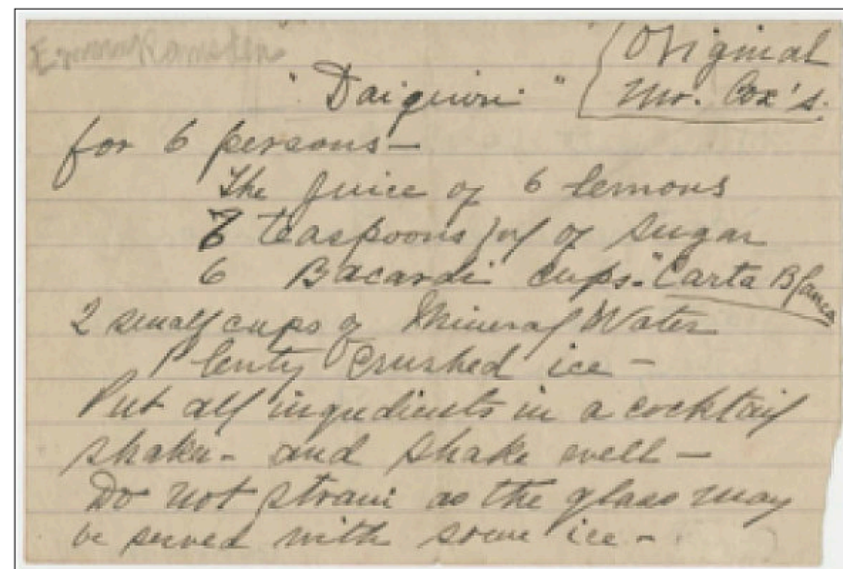 "Daiquiri" (Original
Mr. Cox's.
for 6 persons—
The juice of 6 lemons
6 teaspoonsful of sugar
6 Bacardi cups-"Carta Blanca
2 small cups of Mineral Water
Plenty crushed ice —
Put all ingredients in a cocktail
shaker - and shake well —
Do not strain as the glass may
be served with some ice -